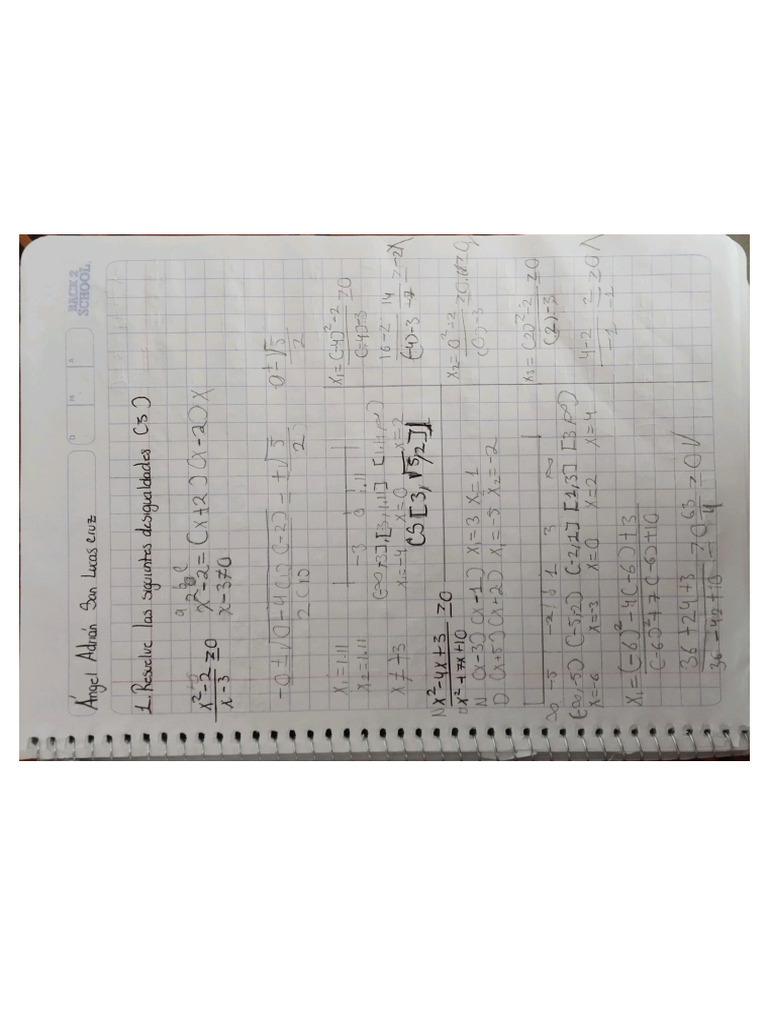 BACK 2
SCHOOL.
D M A
Ángel Adrián San Lucas Cruz
1. Resuelve las siguientes desigualdades (5)
a b c
x²-2/x-3 ≥0 x²-2=(x+2)(x-2) x
x-3≠0
-0±√0-4(1)(-2)/2(1) = ±√5/2 0±√5/2
x₁=1.11
x₂=1.11
x≠+3
-3 0 1.11
x₁=-4 x=0 x=2
CS[3,√5/2]]
x₁=(-4)²-2/(-4)-3 ≥0
16-2/(-4)-3 14/-7 =-2
x₂=0²-2/(0)-3
x₃=(2)²-2/(2)-3 ≥0
4-2/-1 2/-1 ≥0
N x²-4x+3/D x²+7x+10 ≥0
N (x-3)(x-1) x₁=3 x₂=1
D (x+5)(x+2) x₁=-5 x₂=-2
∞ -5 -2 1 3 ∞
(∞,-5) (-5,2) (-2,1] [1,3] [3,∞)
x=-6 x=-3 x=0 x=2 x=4
x₁=(-6)²-4(-6)+3/(-6)²+7(-6)+10
36+24+3/36-42+10 ≥0 63/4 ≥0 √